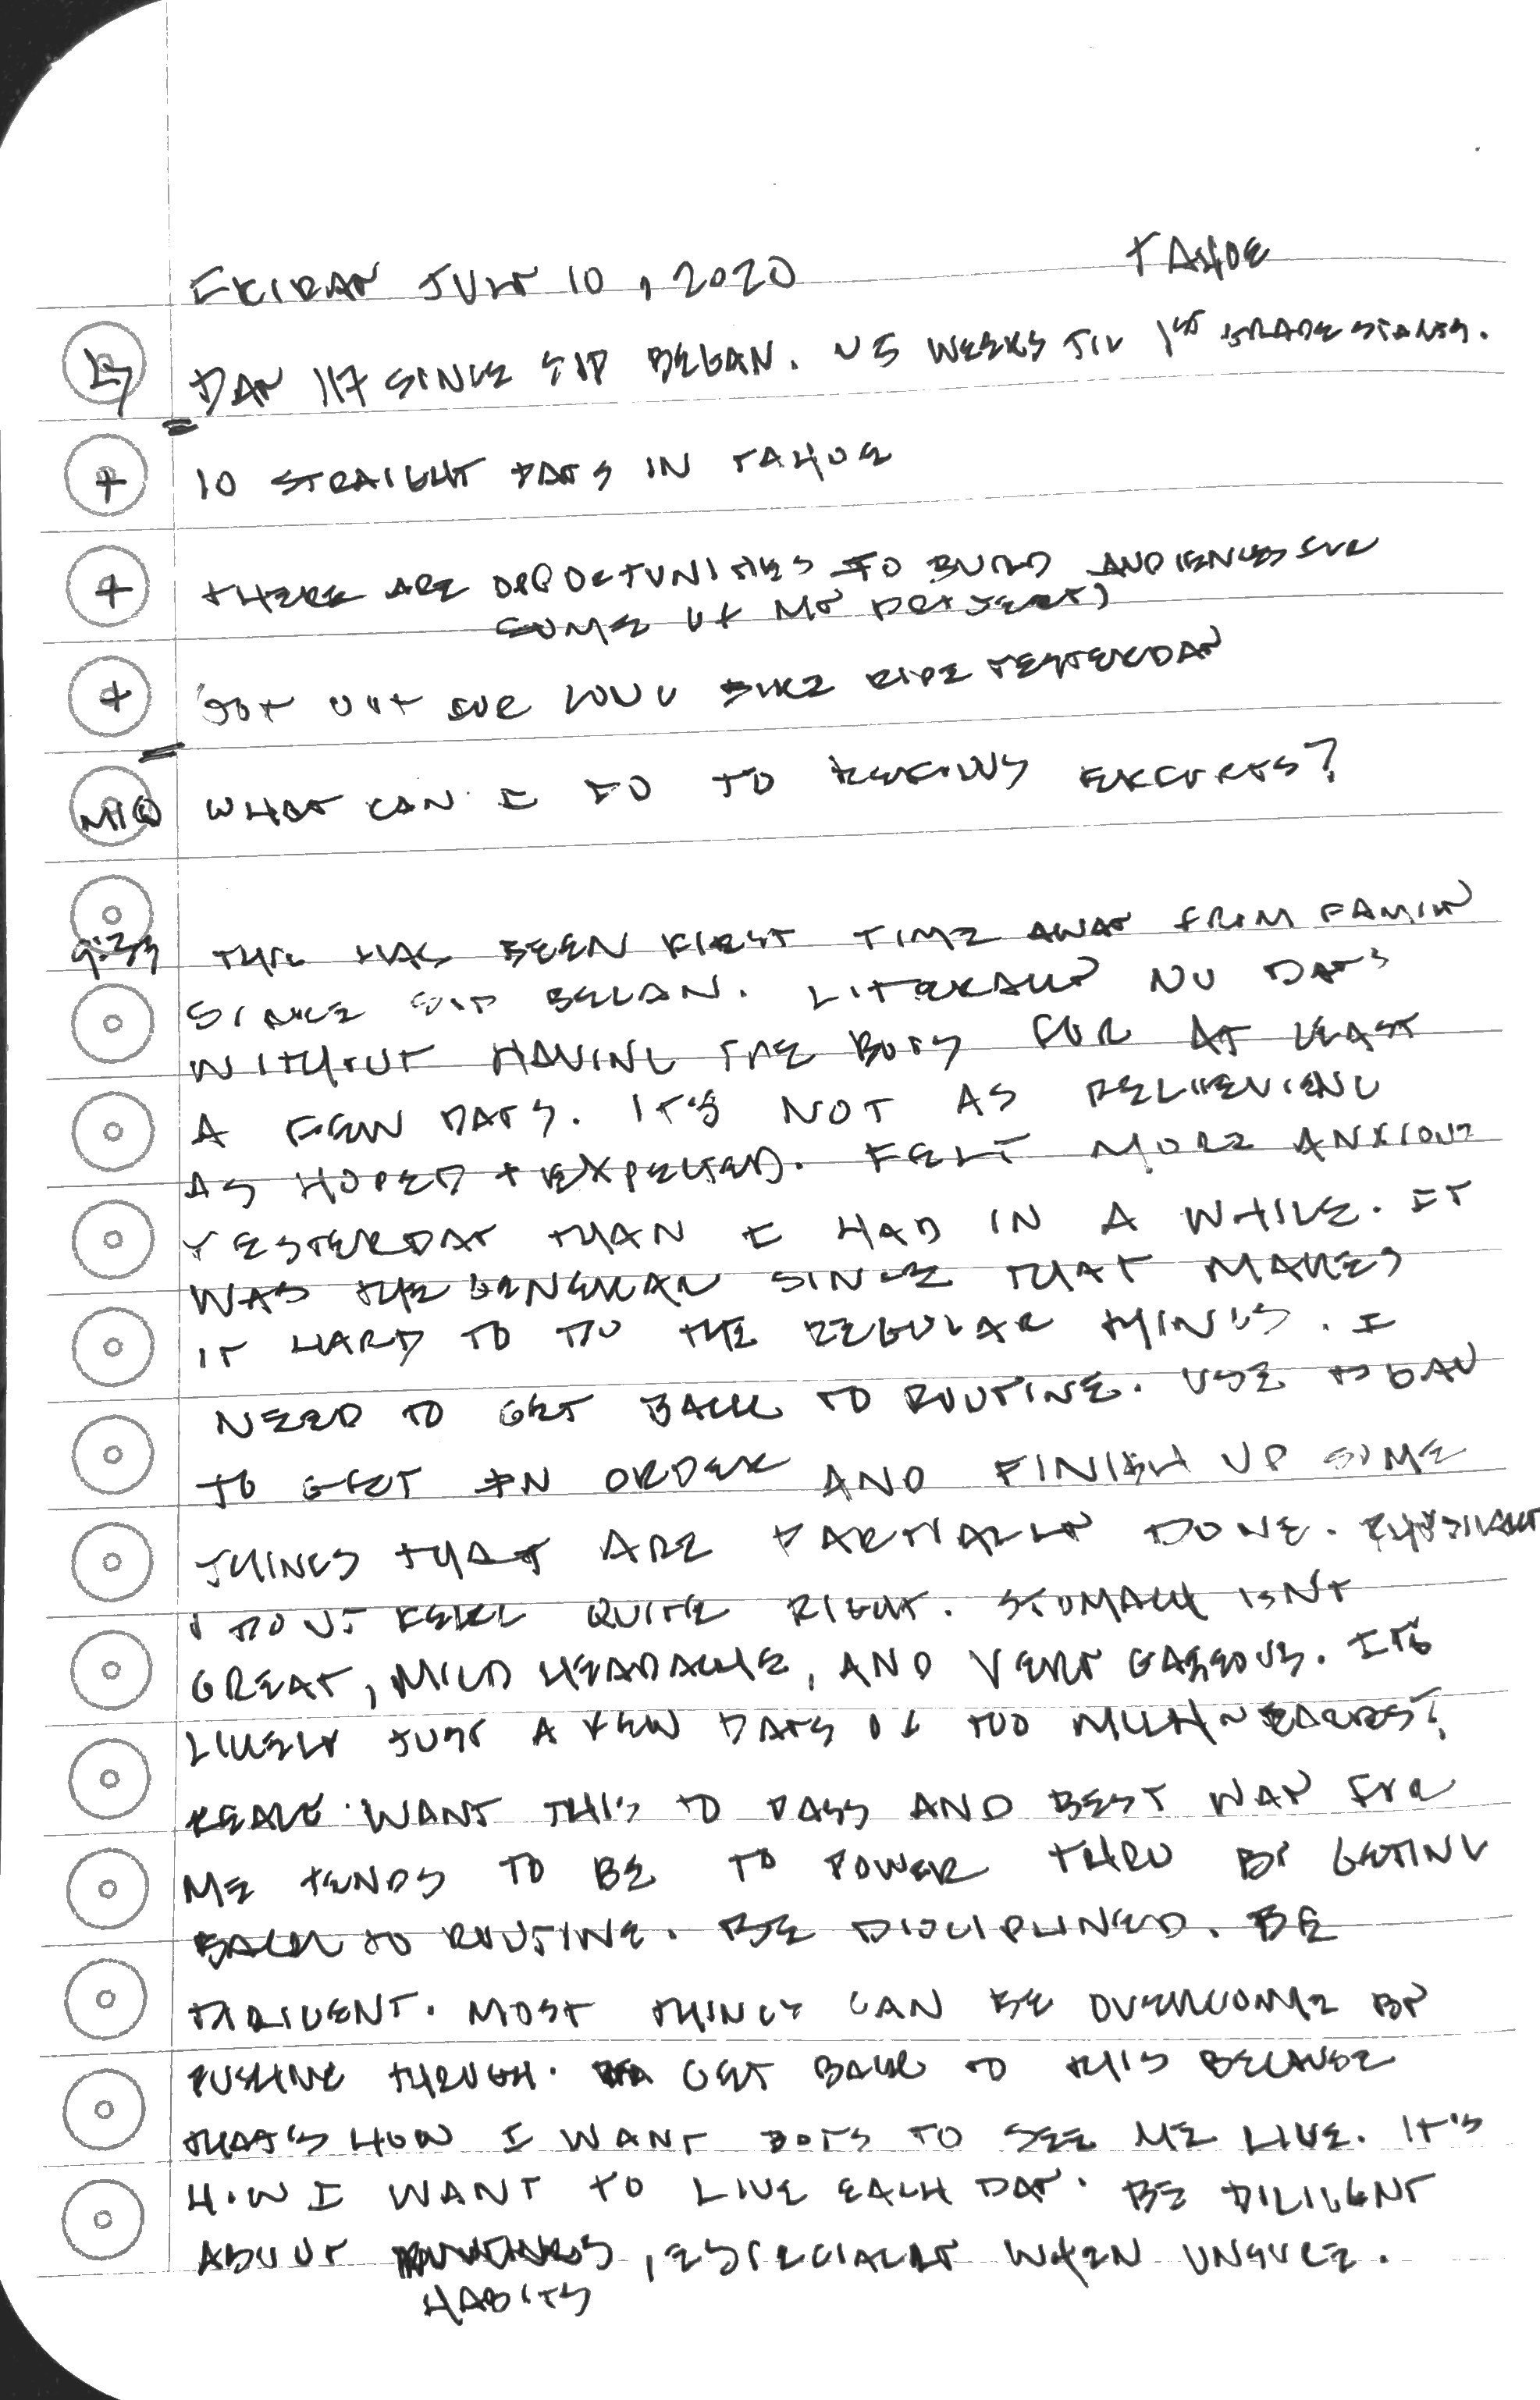 FRIDAY JULY 10, 2020 TAHOE
DAY 117 SINCE SIP BEGAN. 5 WEEKS TIL 1ST GRADE STARTS.
+ 10 STRAIGHT DAYS IN TAHOE
+ THERE ARE OPPORTUNITIES TO BUILD AUDIENCES FOR
SOME OF MY PROJECTS
+ GOT OUT FOR LONG BIKE RIDE YESTERDAY
MIQ WHAT CAN I DO TO EFFORTS?
9:33 THIS HAS BEEN FIRST TIME AWAY FROM FAMILY
SINCE SIP BEGAN. LITERALLY NO DAYS
WITHOUT HAVING THE BOYS FOR AT LEAST
A FEW DAYS. IT'S NOT AS RELIEVING
AS HOPED + EXPECTED. FELT MORE ANXIOUS
YESTERDAY THAN I HAD IN A WHILE. IT
WAS THE GENERAL SINCE THAT MAKES
IT HARD TO DO THE REGULAR THINGS. I
NEED TO GET BACK TO ROUTINE. USE TODAY
TO GET IN ORDER AND FINISH UP SOME
THINGS THAT ARE PARTIALLY DONE. PHYSICALLY
I DON'T FEEL QUITE RIGHT. STOMACH ISN'T
GREAT, MILD HEADACHE, AND VERY GASEOUS. ITS
LIKELY JUST A FEW DAYS OF TOO MUCH
REALLY WANT THIS TO PASS AND BEST WAY FOR
ME TENDS TO BE TO POWER THRU BY GETTING
BACK TO ROUTINE. BE DISCIPLINED. BE
DILIGENT. MOST THINGS CAN BE OVERCOME BY
PUSHING THROUGH. GET BACK TO THIS BECAUSE
THAT'S HOW I WANT BOYS TO SEE ME LIVE. IT'S
HOW I WANT TO LIVE EACH DAY. BE DILIGENT
ABOUT , ESPECIALLY WHEN UNSURE.
HABITS